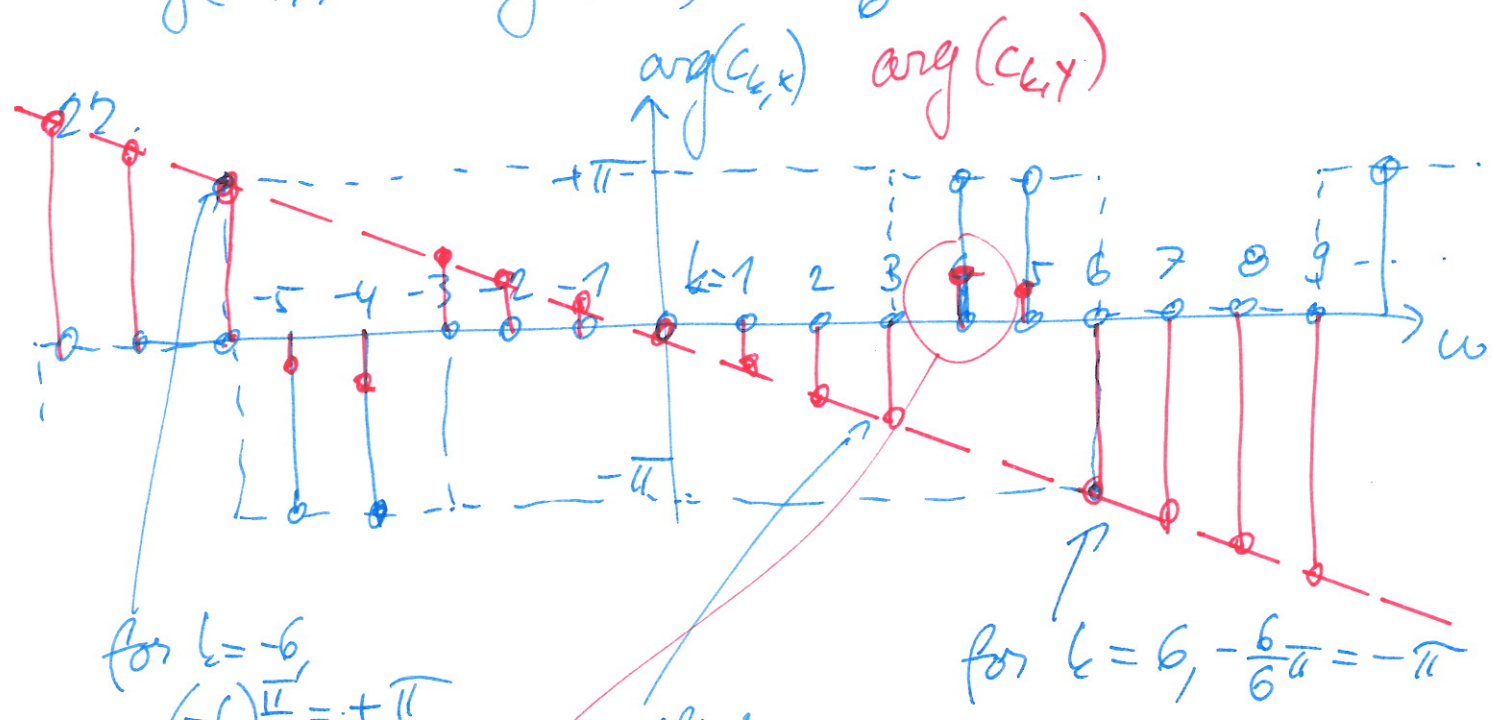 arg(c_k,x) arg(c_k,y)
+π
-5 -4 -3 -2 -1 k=1 2 3 5 6 7 8 9
ω
-π
for k=-6,
for k = 6, -6/6 π = -π
(-6) π = + π